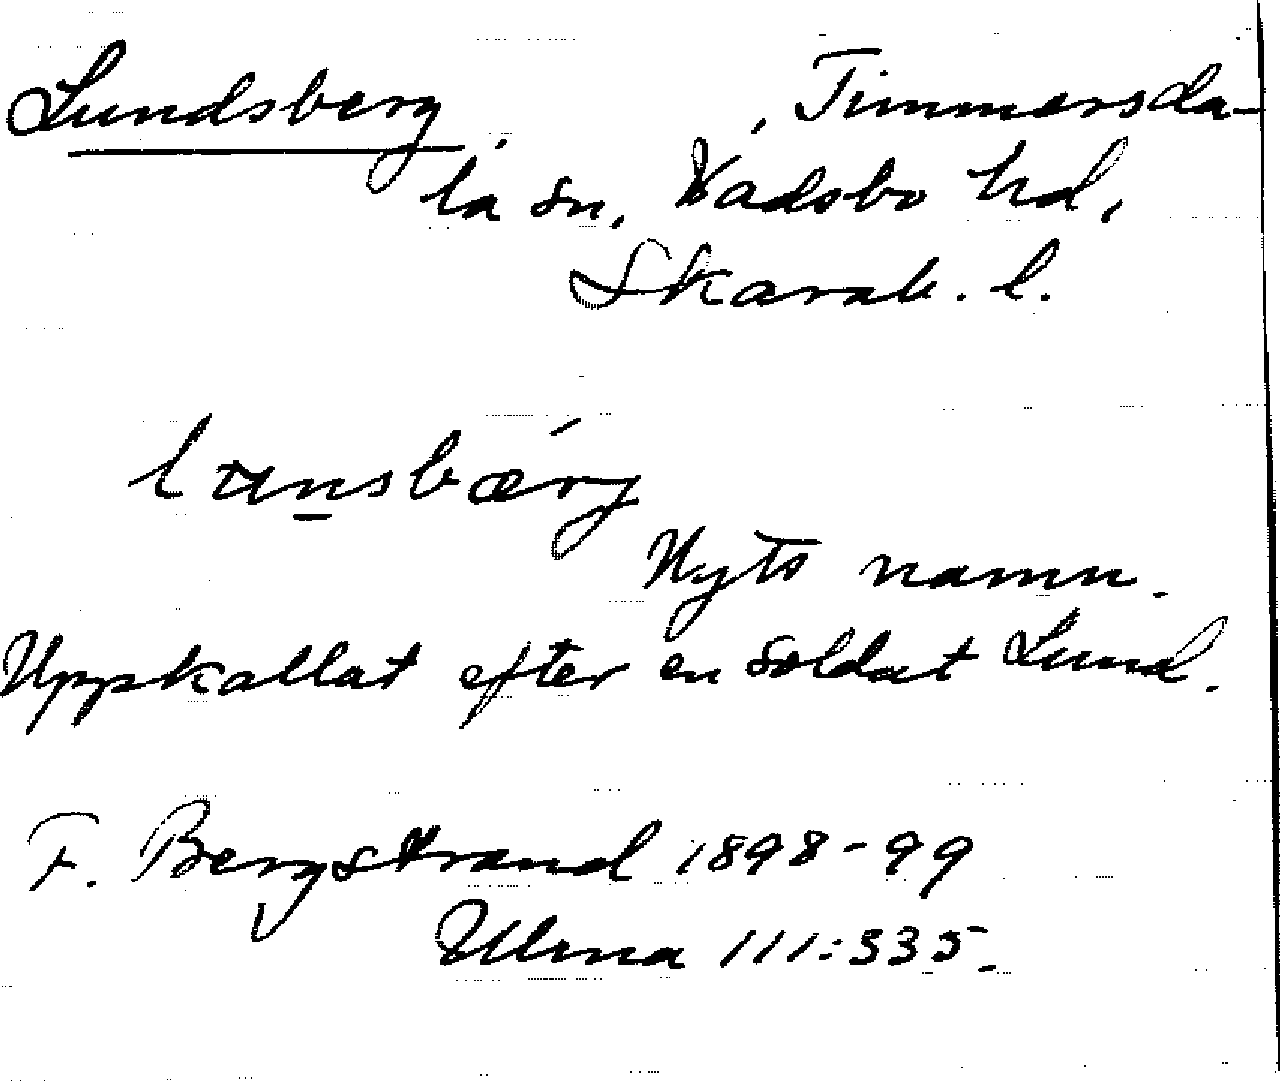 Lundsberg, Timmersda-
la sn, Vadsbo hd,
Skarab. l.
lunsbærj
Nytt namn.
Uppkallat efter en soldat Lund.
F. Bergstrand 1898-99
Ulma 111:335.